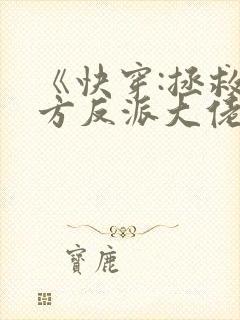 《快穿:拯救
方反派大佬
寶鹿